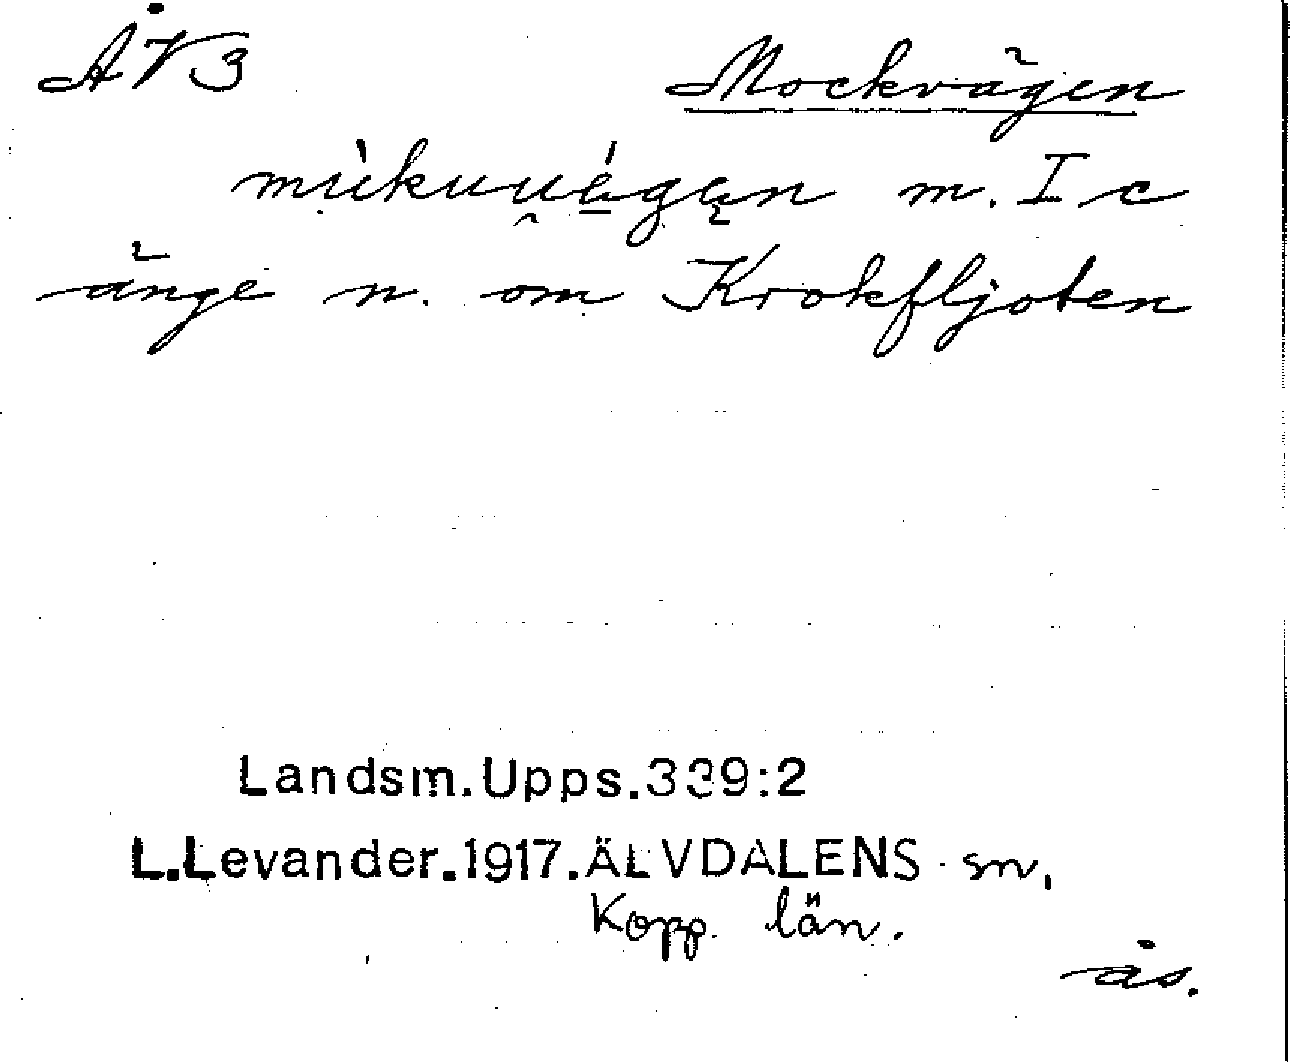 ÅV3
Mockvägen
mùkuu̯ég̨en m. I c
änge n. om Krokfljoten
Landsm.Upps.339:2
L.Levander.1917.ÄLVDALENS sn,
Kopp. län.
ås.